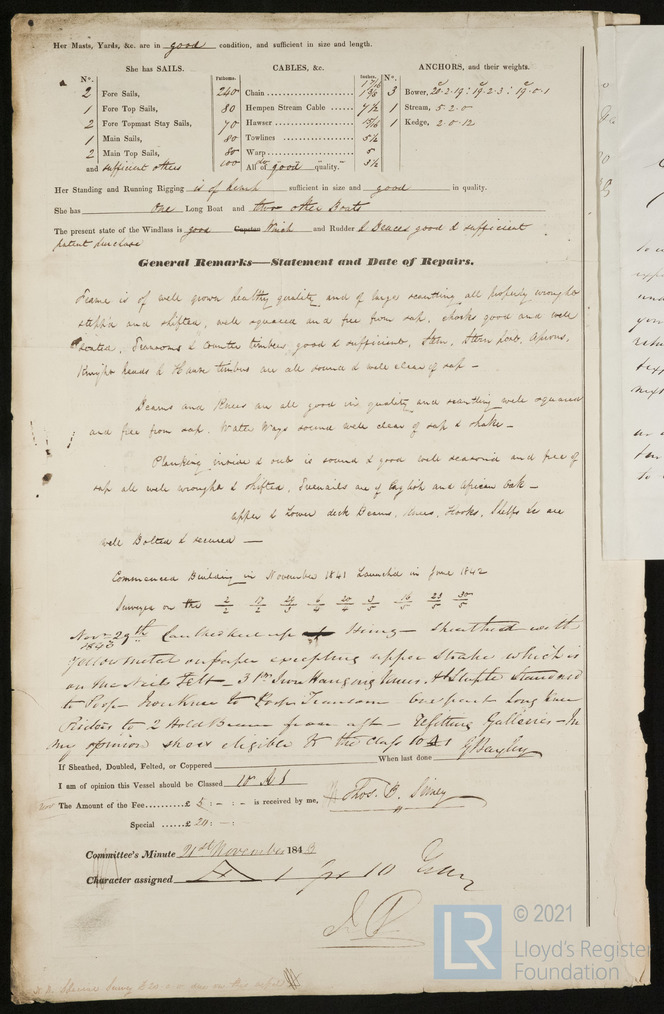 Her Masts, Yards, &c. are in good condition, and sufficient in size and length.
She has SAILS. CABLES, &c. ANCHORS, and their weights.
N°. Fathoms. Inches. N°.
2 Fore Sails, 240 Chain 1 7/16 1 3/8 3 Bower, 20·2·19: 19·2·3: 19·0·1
1 Fore Top Sails, 80 Hempen Stream Cable 7½ 1 Stream, 5·2·0
2 Fore Topmast Stay Sails, 70 Hawser 15/16 1 Kedge, 2·0·12
1 Main Sails, 80 Towlines 5½
2 Main Top Sails, 80 Warp 5
and sufficient others 100 do 3½
All of good quality.
Her Standing and Running Rigging is of hemp sufficient in size and good in quality.
She has one Long Boat and two other Boats
The present state of the Windlass is good Capstan Winch and Rudder & Braces good & sufficient
patent purchase
General Remarks—Statement and Date of Repairs.
Frame is of well grown healthy quality and of large scantling all properly wrought
stepp'd and shifted, well squared and free from sap, chocks good and well
Transoms & Counter timbers good & sufficient, Stem, Stern post, Aprons,
Knight heads & Hawse timbers are all sound & well clear of sap –
Beams and Knees are all good in quality and scantling well squared
and free from sap. Water Ways sound well clear of sap & shake –
Planking inside & out is sound & good well seasoned and free of
sap all well wrought & shifted, Treenails are of English and African Oak –
upper & Lower deck Beams, Knees, Hooks, Shelfs &c are
well Bolted & secured –
Commenced Building in November 1841 Launched in June 1842
Surveys on the 2/2 17/2 24/3 6/4 20/4 3/5 16/5 23/5 30/5
Nov 29th 1843 Caulked keel up Using – sheathed with
Yellow metal on paper excepting upper strake which is
on Felt – 3 Iron Hanging Knees, A Staple Standard
to Poop Iron Knee to Poop Transom long Knee
Riders to 2 Hold Beams from aft – Refitting Galleries – In
my opinion she is eligible to the class 10 A1 G Bayley
If Sheathed, Doubled, Felted, or Coppered When last done
I am of opinion this Vessel should be Classed 10 A 1
The Amount of the Fee..........£ 5 : - : - is received by me, Thos. B. Simey
Special ......£ 20 : - :
Committee's Minute 21st November 1843
Character assigned A 1 for 10
© 2021
LR
Lloyd's Register
Foundation